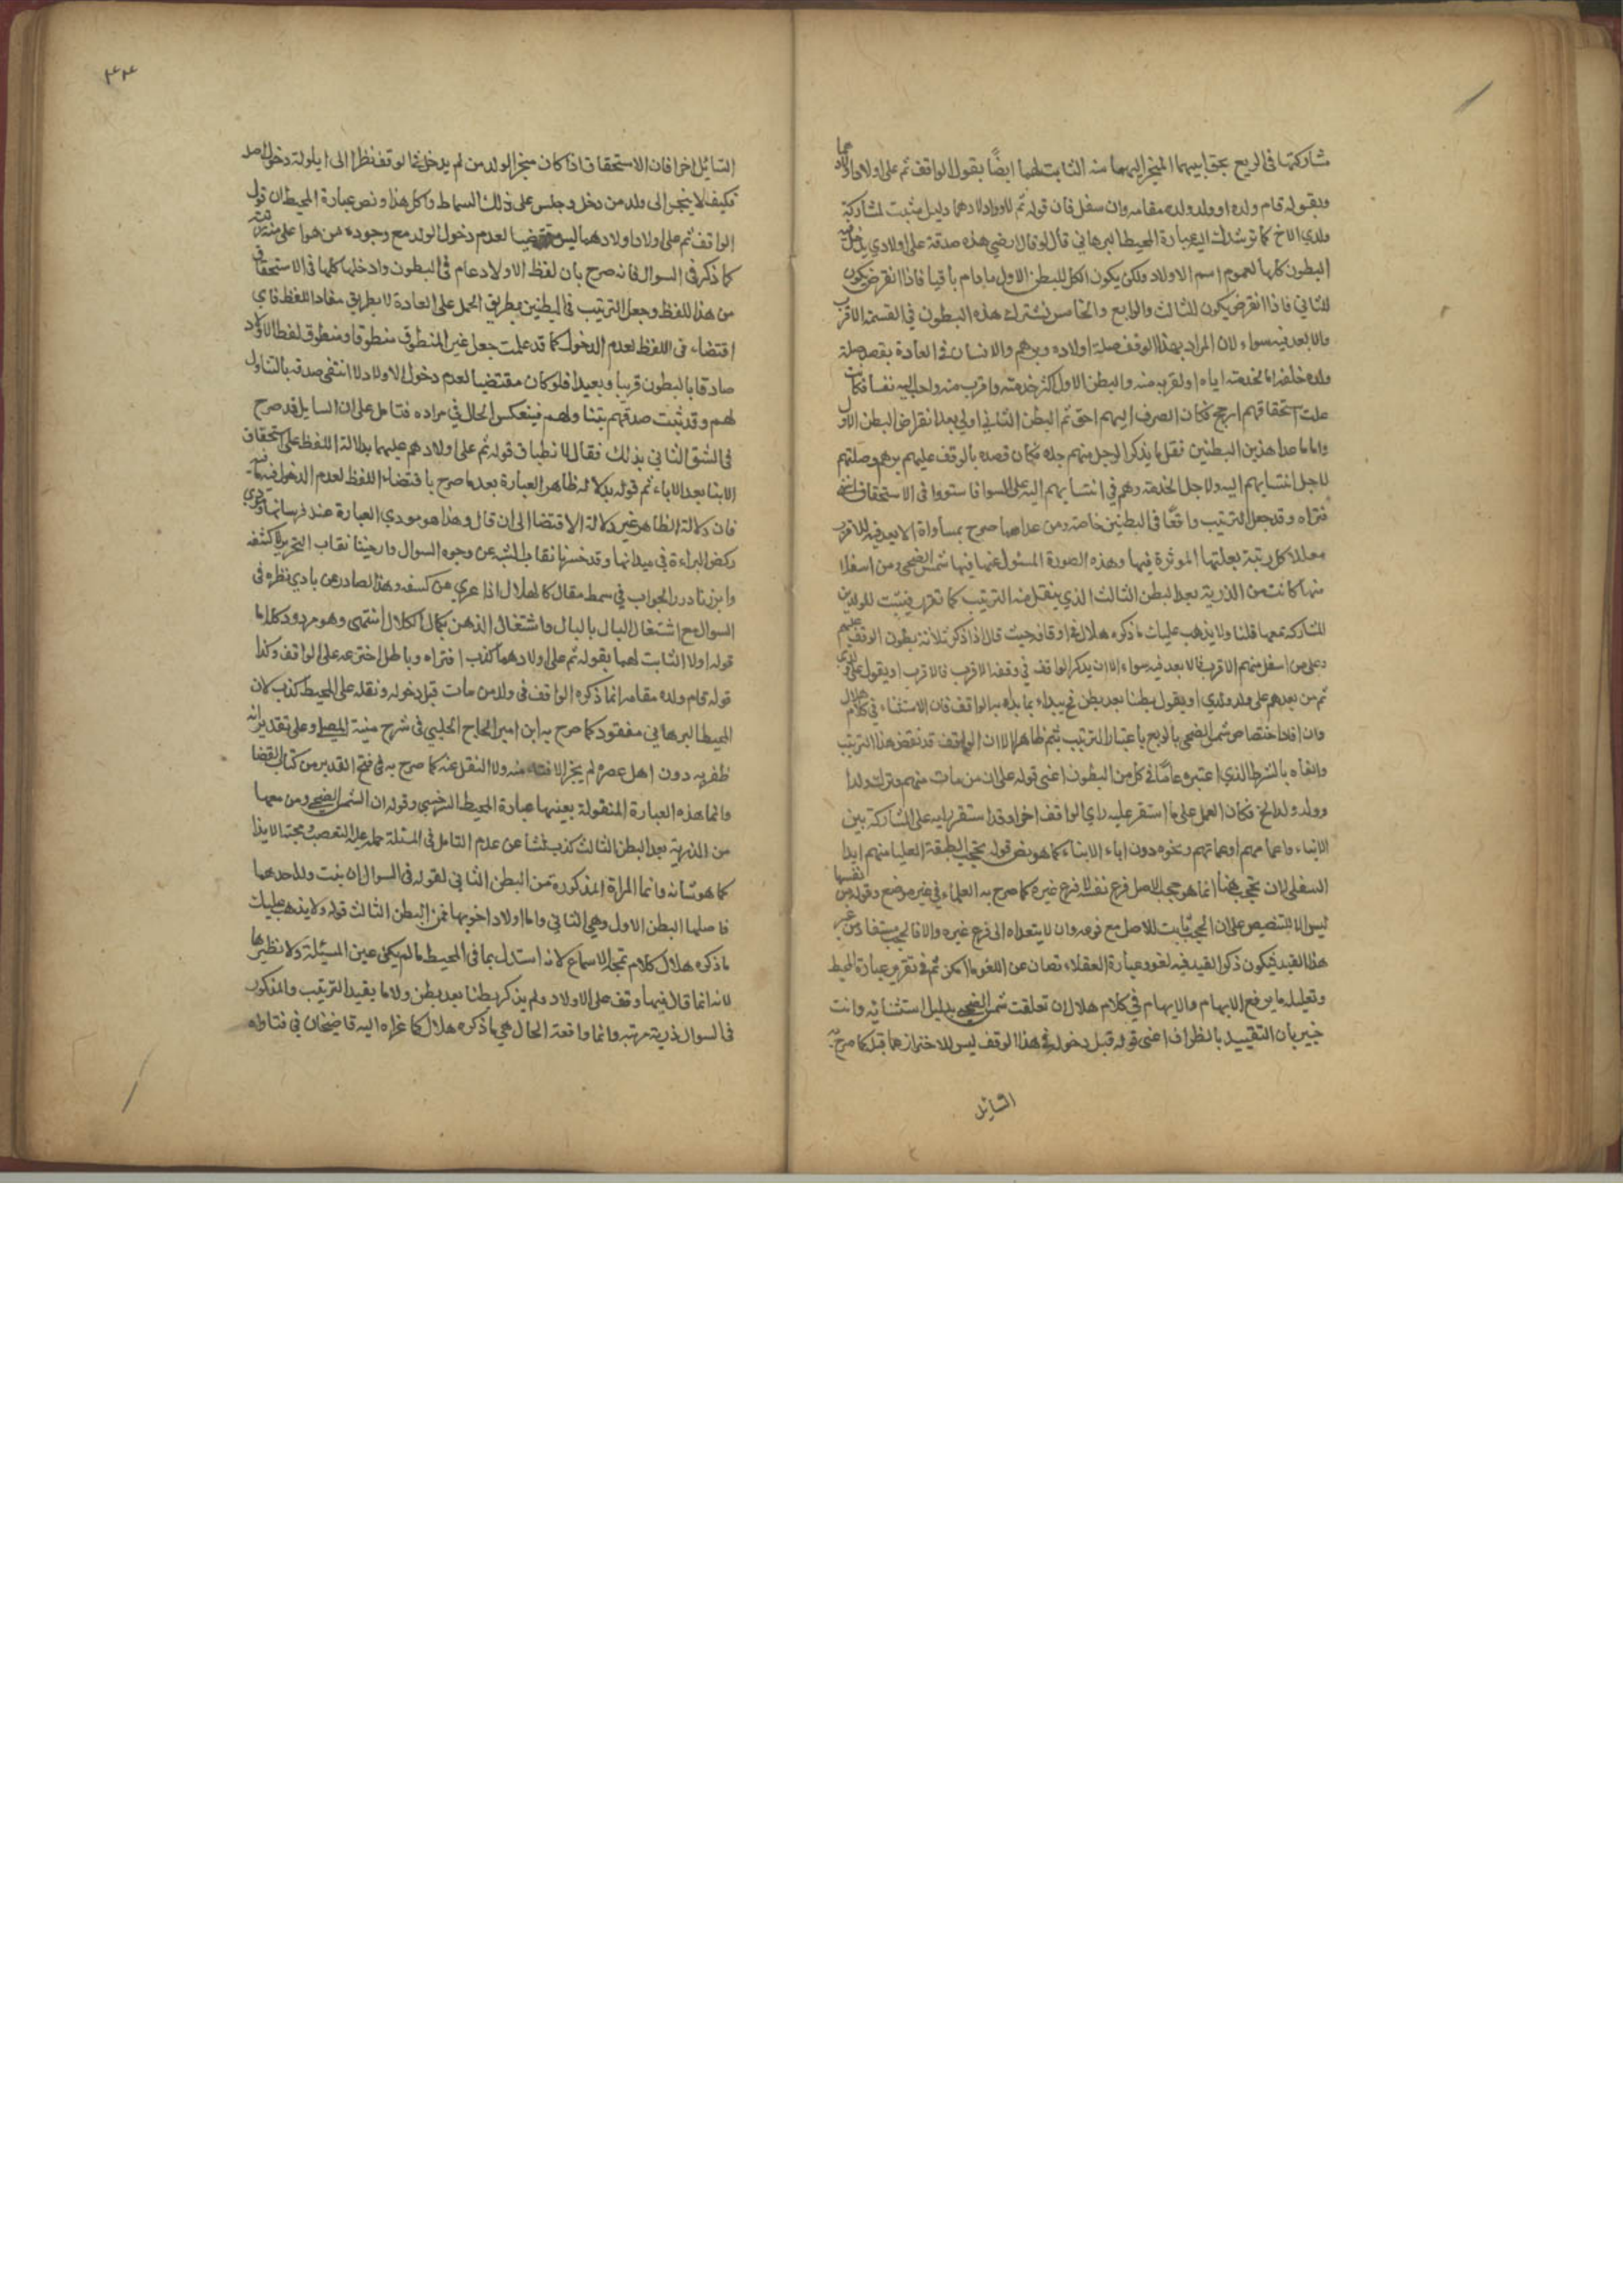 مشاركتها فى الريع بحق ابيهما المنجز اليهما منه الثابت لهما ايضًا بقول الواقف ثم على اولاد اولادهما
وبقوله قام ولده او ولد ولده مقامه وان سفل فان قوله ثم لاولادهما دليل مثبت لمشاركة
ولدي الاخ كما ترشدك اليه عبارة المحيط البرهاني قال لو قال ارضي هذه صدقة على اولادي يدخل فيه
البطون كلها لعموم اسم الاولاد ولكن يكون الكل للبطن الاول ما دام باقيا فاذا انقرض يكون
للثاني فاذا انقرض يكون للثالث والرابع والخامس تشترك هذه البطون في القسمة الاقرب
والابعد فيه سواء لان المراد بهذا الوقف صلة اولاده وبرهم والانسان فى العادة يقصد صلة
ولده خلفه اما لخدمته اياه او لقربه منه والبطن الاول اكثر خدمته واقرب منه واحب اليه نفسا فكانت
علت استحقاقهم ارجح فكان الصرف اليهم احق ثم البطن الثاني اولي بعد انقراض البطن الاول
واما ما عدا هذين البطنين فقل ما يذكر الرجل منهم جده فكان قصده بالوقف عليهم برهم وصلتهم
لاجل انتسابهم اليه ولا جل الخدمة وهم في انتسابهم اليه على السوا فاستووا فى الاستحقاق انتهى
فتراه وقد جعل الترتيب واقعًا فى البطنين خاصة ومن عداهما صرح بمساواة الابعد فيه للاقرب
معللا كل رتبة بعلتها الموثرة فيها وهذه الصورة المسئول عنها فيها شمس الضحى ومن اسفلا
منها كانت من الذرية بعد البطن الثالث الذي ينقل فيه الترتيب كما تقرر فيثبت للولدين
المشاركة معها قلنا ولا يذهب عليك ما ذكره هلال فى اوقافه حيث قال اذا ذكر ثلاثة بطون الوقف عليهم
وعلى من اسفل منهم الاقرب والابعد فيه سواء الا ان يذكر الواقف في وقفه الاقرب فالاقرب او يقول على ولدي
ثم من بعدهم على ولد ولدي او يقول بطنا بعد بطن فحينئذ يبداء بما بداء به الواقف فان الاستثناء في كلام هلال
وان افاد اختصاص شمس الضحى بالريع باعتبار الترتيب بثم ظاهرا الا ان الواقف قد نقض هذا الترتيب
والغاه بالشرط الذي اعتبره عامًا في كل من البطون اعني قوله على ان من مات منهم وترك ولدا
وولد ولد الخ فكان العمل على ما استقر عليه راي الواقف اخرا وقد استقر رايه على المشاركة بين
الابناء واعمامهم او عماتهم ونحوه دون اباء الابناء كما هو نص قوله تحجب الطبقة العليا منهم ابدا
السفلى لان تحجب هنا انما هو حجب الاصل فرع نفسه لا فرع غيره كما صرح به العلماء في غير موضع وقوله من نفسها
ليس الا للتنصيص على ان الحجب ثابت للاصل مع فرعه وان لا يتعداه الى فرع غيره والا فالحجب مستفاد من غير
هذا القيد فيكون ذكر القيد فيه لغو وعبارة العقلاء تصان عن اللغو ما امكن ثم في تقرير عبارة المحيط
وتعليله ما يرفع الابهام والايهام في كلام هلال ان تعلقت شمس الضحى بدليل استثنائه وانت
خبير بان التقييد بالظرف اعني قوله قبل دخوله فى هذا الوقف ليس للاحتراز عما قبل كما صرح به
السائل
٣٣
السائل اخرا فان الاستحقاق اذا كان منجز الولد من لم يدخل فى الوقف نظرا الى ايلولة دخول اصله
فكيف لا ينجر الى ولد من دخل وجلس على ذلك السماط واكل هذا ونص عبارة المحيط ان قول
الواقف ثم على اولاد اولادهما ليس مقتضيا لعدم دخول الولد مع وجود من هو اعلى منه رتبة
كما ذكر فى السوال فانه صرح بان لفظ الاولاد عام فى البطون وادخلها كلها فى الاستحقاق
من هذا اللفظ وجعل الترتيب فى البطنين بطريق الحمل على العادة لا بطريق مفاد اللفظ فاي
اقتضاء فى اللفظ لعدم الدخول كما قد علمت جعل غير المنطوق منطوقا ومنطوق لفظ الاولاد
صادقا بالبطون قريبا وبعيدا فلو كان مقتضيا لعدم دخول الاولاد لا انتفى صدقه بالتناول
لهم وقد ثبت صدقهم بتنا ولهم فينعكس الحال في مراده فتامل على ان السايل قد صرح
فى الشق الثاني بذلك فقال لانطباق قوله ثم على اولادهم عليهما بدلالة اللفظ على استحقاق
الابنا بعد الاباء ثم قوله بدلالة ظاهر العبارة بعد ما صرح باقتضاء اللفظ لعدم الدخول فيه
فان دلالة الظاهر غير دلالة الاقتضا الى ان قال وهذا هو مودي العبارة عند فرسانها وذوي
ركض البراءة في ميدانها وقد حسرنا نقاب الشبه عن وجوه السوال وارخينا نقاب التحرير لكشفه
وابرزنا درر الجواب في سمط مقال كالهلال اذا عري عن كسفه وهذا الصادر عن بادي نظره فى
السوال مع اشتغال البال بالبال واشتغال الذهن بكمال الكلال انتهى وهو مردود كلاما
قوله اولا الثابت لهما بقوله ثم على اولادهما كذب افتراه وباطل اخترعه على الواقف وكذا
قوله قام ولده مقامه انما ذكره الواقف فى ولد من مات قبل دخوله ونقله على المحيط كذب لان
المحيط البرهاني مفقود كما صرح به ابن امير الحاج الحلبي فى شرح منية المصلي وعلى تقدير انه
ظفر به دون اهل عصره لم يجز الافتاء منه ولا النقل عنه كما صرح به فى فتح القدير من كتاب القضا
وانما هذه العبارة المنقولة بعينها عبارة المحيط السرخسي وقوله ان الشمس الضحى ومن معها
من الذرية بعد البطن الثالث كذب نشا عن عدم التامل فى المسئلة حمله عليه التعصب ومحبة الايذا
كما هو شانه وانما المراة المذكورة من البطن الثاني لقوله فى السوال ان بنت ولد احدهما
فاصلها البطن الاول وهي الثاني واما اولاد اخويها فمن البطن الثالث قوله ولا يذهب عليك
ما ذكره هلال كلام تمجه الاسماع لانه استدل بما فى المحيط ما لم يكن عين المسيئلة ولا نظيرها
لانه انما قال فيها وقف على الاولاد ولم يذكر بطنا بعد بطن ولا ما يفيد الترتيب والمذكور
فى السوال ذرية مرتبه وانما واقعة الحال هي ما ذكره هلال كما عزاه اليه قاضيخان في فتاواه